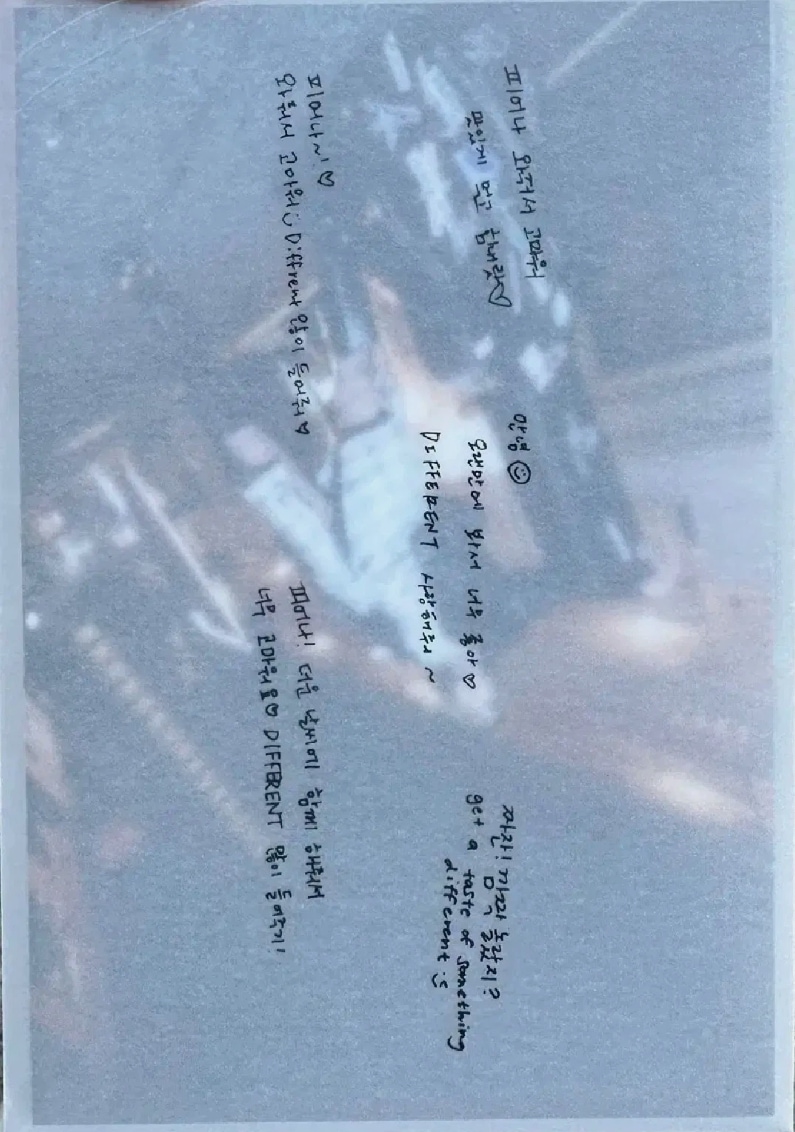 피어나 와줘서 고마워
맛있게 먹고 힘내랏♡
안녕 ☺
오랜만에 봐서 너무 좋아♡
DIFFERENT 사랑해줘 ~
짜잔! 깜짝 놀랐지?
get a taste of something
different :)
피어나~!♡
와줘서 고마워 :) Different 많이 들어줘♡
피어나! 더운 날씨에 함께 해줘서
너무 고마워용♡ DIFFERENT 많이 들어주기!